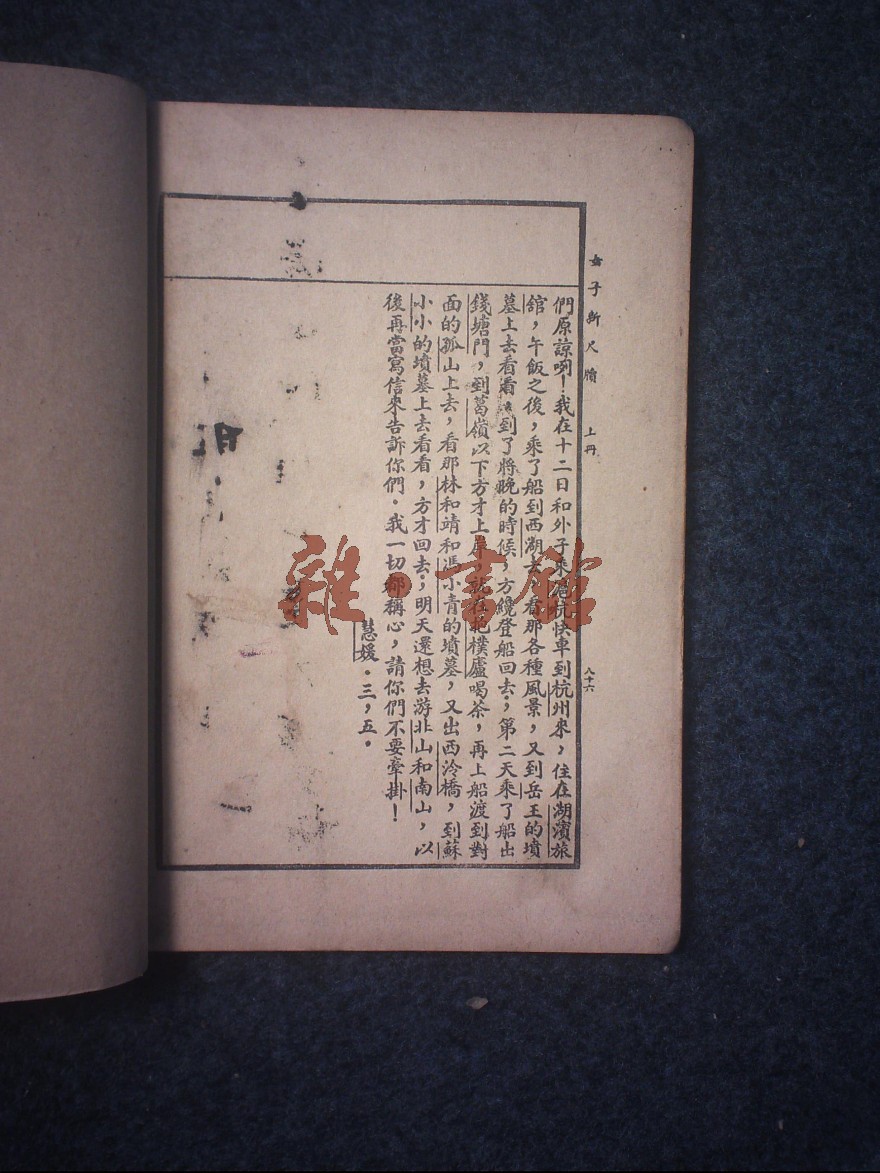 女子新尺牘 上冊
八十六
們原諒咧!我在十二日和外子乘滬杭快車到杭州來,住在湖濱旅
舘,午飯之後,乘了船到西湖去,看那各種風景,又到岳王的墳
墓上去看看,到了將晚的時候,方纔登船回去;第二天乘了船出
錢塘門,到葛嶺以下方才上岸,就在抱樸廬喝茶,再上船渡到對
面的孤山上去,看那林和靖和馮小青的墳墓,又出西泠橋,到蘇
小小的墳墓上去看看,方才回去;明天還想去游北山和南山,以
後再當寫信來告訴你們。我一切都稱心,請你們不要牽掛!
慧媛。三,五。
雜·書館